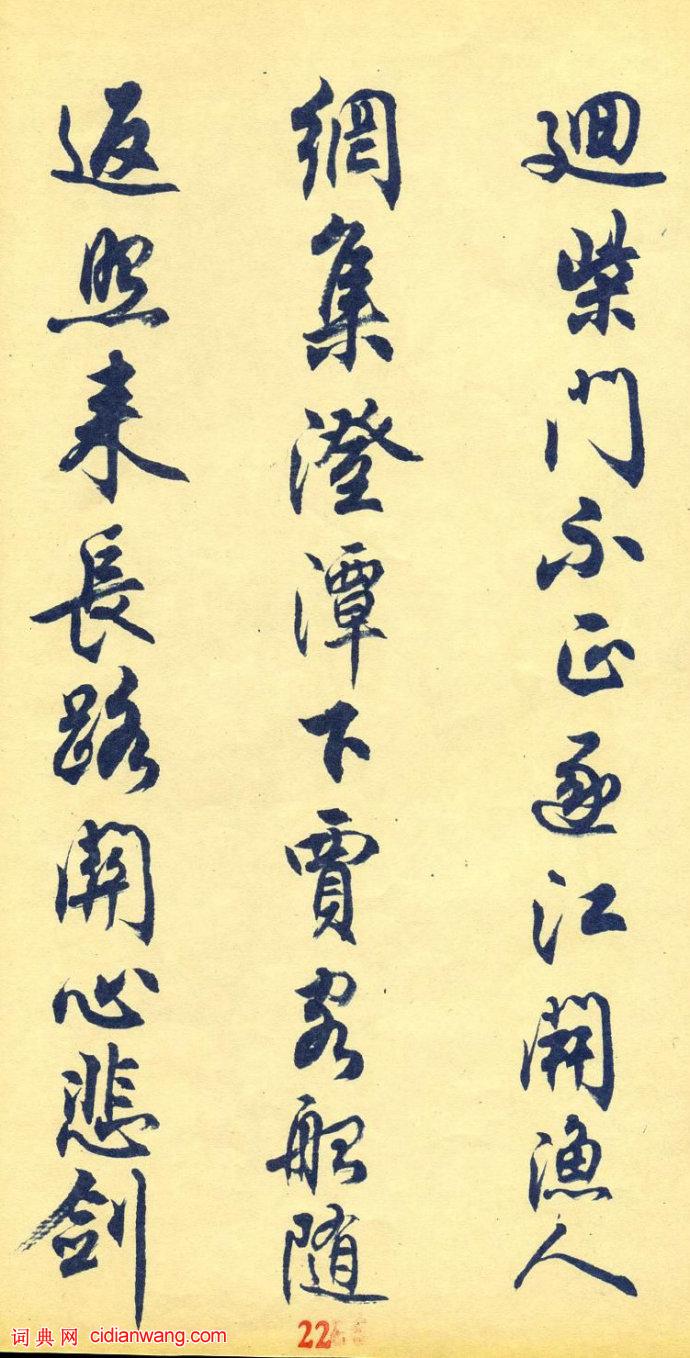 廻柴門不正逐江開漁人
網集澄潭下賈客船隨
返照來長路關心悲劍
22
词典网 cidianwang.com